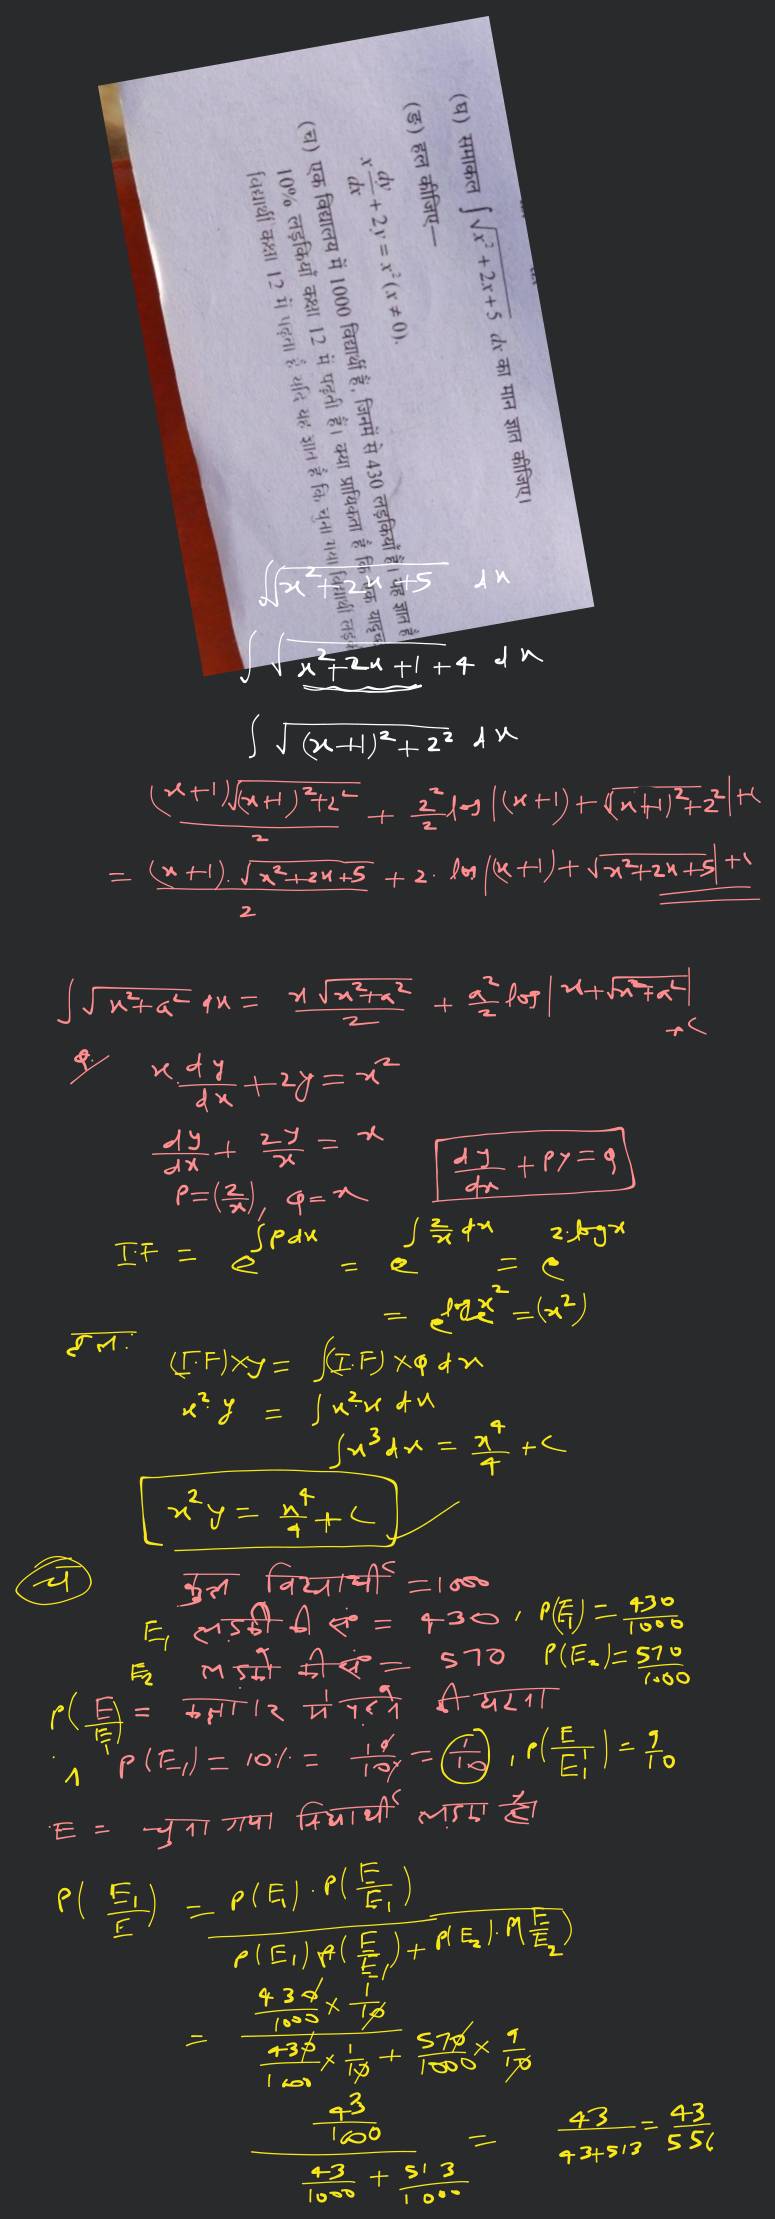 (घ) समाकल ∫√x² + 2x + 5 dx का मान ज्ञात कीजिए।
(ङ) हल कीजिए—
x dy/dx + 2y = x² (x ≠ 0).
(च) एक विद्यालय में 1000 विद्यार्थी हैं, जिनमें से 430 लड़कियाँ हैं। यह ज्ञात है
10% लड़कियाँ कक्षा 12 में पढ़ती हैं। क्या प्रायिकता है कि एक
विद्यार्थी कक्षा 12 में पढ़ता है यदि यह ज्ञात है कि चुना गया विद्यार्थी
∫√x²+2x+5 dx
∫√x²+2x+1+4 dx
∫√(x+1)²+2² dx
(x+1)√(x+1)²+2²/2 + 2²/2 log|(x+1)+√(x+1)²+2²|+c
= (x+1).√x²+2x+5/2 + 2. log|(x+1)+√x²+2x+5|+c
∫√x²+a² dx = x√x²+a²/2 + a²/2 log|x+√x²+a²|
+c
Q. x.dy/dx + 2y = x²
dy/dx + 2y/x = x
dy/dx + Py = Q
P=(2/x), Q=x
I.F = e^∫Pdx = e^∫2/x dx = e^2.logx
= e^logₑx² = (x²)
हल:
(I.F)×y = ∫(I.F)×Q dx
x².y = ∫x².x dx
∫x³dx = x⁴/4 + c
x²y = x⁴/4 + c
च
कुल विद्यार्थी = 1000
E₁ लड़की की सं = 430, P(E₁) = 430/1000
E₂ लड़को की सं = 570 P(E₂) = 570/1000
P(E/E₁) = कक्षा 12 में पढ़ने की घटना
P(E₁) = 10% = 10/100 = 1/10, P(E/E₁') = 9/10
E = चुना गया विद्यार्थी लड़का है।
P(E₁/E) = P(E₁).P(E/E₁)/P(E₁)P(E/E₁)+P(E₂).P(E/E₂)
= 430/1000 × 1/10 / 430/1000 × 1/10 + 570/1000 × 9/10
43/1000 / 43/1000 + 513/1000 = 43/43+513 = 43/556